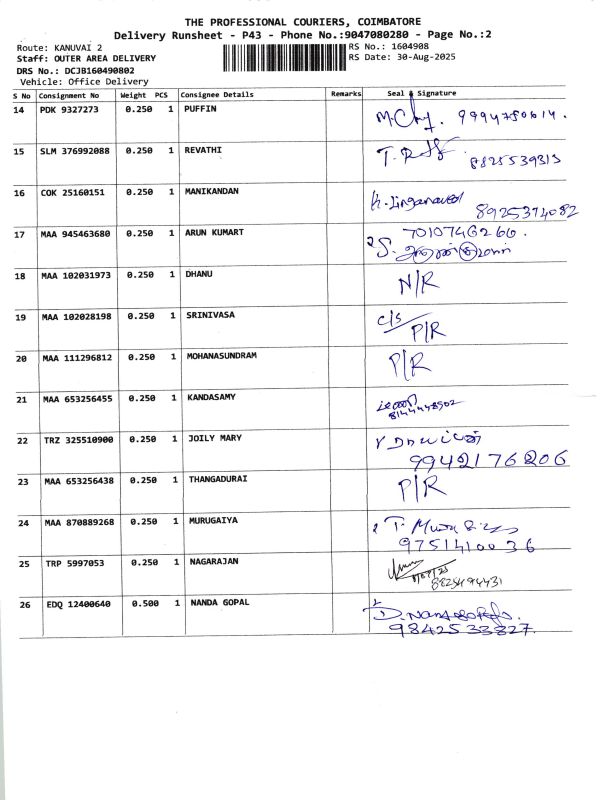 THE PROFESSIONAL COURIERS, COIMBATORE
Delivery Runsheet - P43 - Phone No.:9047080280 - Page No.:2
Route: KANUVAI 2 RS No.: 1604908
Staff: OUTER AREA DELIVERY RS Date: 30-Aug-2025
DRS No.: DCJB160490802
Vehicle: Office Delivery
S No Consignment No Weight PCS Consignee Details Remarks Seal & Signature
14 PDK 9327273 0.250 1 PUFFIN
15 SLM 376992088 0.250 1 REVATHI 8825539313
16 COK 25160151 0.250 1 MANIKANDAN 8925374082
17 MAA 945463680 0.250 1 ARUN KUMART 7010746266.
S. அருண்குமார்
18 MAA 102031973 0.250 1 DHANU N/R
19 MAA 102028198 0.250 1 SRINIVASA C/S
P/R
20 MAA 111296812 0.250 1 MOHANASUNDRAM P/R
21 MAA 653256455 0.250 1 KANDASAMY
22 TRZ 325510900 0.250 1 JOILY MARY
9942176206
23 MAA 653256438 0.250 1 THANGADURAI P/R
24 MAA 870889268 0.250 1 MURUGAIYA
9751410036
25 TRP 5997053 0.250 1 NAGARAJAN
26 EDQ 12400640 0.500 1 NANDA GOPAL
9842533827.